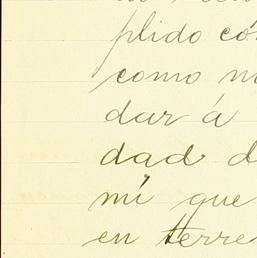 plido có
como m
dar á
dad d
mí que
en terre